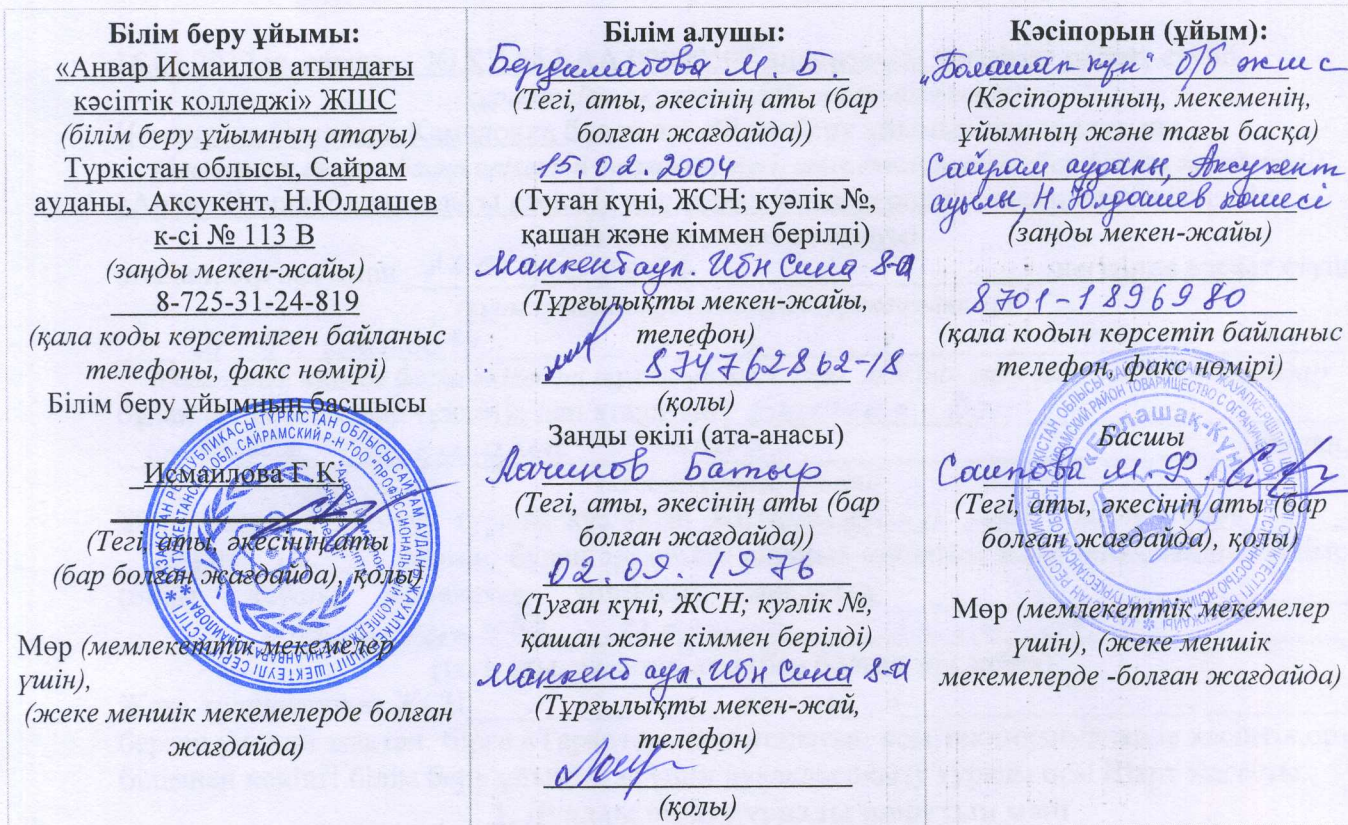 Білім беру ұйымы:
«Анвар Исмаилов атындағы
кәсіптік колледжі» ЖШС
(білім беру ұйымның атауы)
Түркістан облысы, Сайрам
ауданы, Аксукент, Н.Юлдашев
к-сі № 113 В
(заңды мекен-жайы)
8-725-31-24-819
(қала коды көрсетілген байланыс
телефоны, факс нөмірі)
Білім беру ұйымның басшысы
Исмаилова Г.К.
(Тегі, аты, әкесінің аты
(бар болған жағдайда), қолы)
Мөр (мемлекеттік мекемелер
үшін),
(жеке меншік мекемелерде болған
жағдайда)
Білім алушы:
Бердиматова М. Б.
(Тегі, аты, әкесінің аты (бар
болған жағдайда))
15.02.2004
(Туған күні, ЖСН; куәлік №,
қашан және кіммен берілді)
Манкент аул. Ибн Сина 8-а
(Тұрғылықты мекен-жайы,
телефон)
874762862-18
(қолы)
Заңды өкілі (ата-анасы)
Лачинов Батыр
(Тегі, аты, әкесінің аты (бар
болған жағдайда))
02.09.1976
(Туған күні, ЖСН; куәлік №,
қашан және кіммен берілді)
Манкент аул. Ибн Сина 8-а
(Тұрғылықты мекен-жай,
телефон)
(қолы)
Кәсіпорын (ұйым):
"Болашақ күн" б/б жшс
(Кәсіпорынның, мекеменің,
ұйымның және тағы басқа)
Сайрам ауданы, Аксукент
ауылы, Н. Юлдашев көшесі
(заңды мекен-жайы)
8701-1896980
(қала кодын көрсетіп байланыс
телефон, факс нөмірі)
Басшы
Саипова М. Ф.
(Тегі, аты, әкесінің аты (бар
болған жағдайда), қолы)
Мөр (мемлекеттік мекемелер
үшін), (жеке меншік
мекемелерде -болған жағдайда)
«Болашақ-Күн»